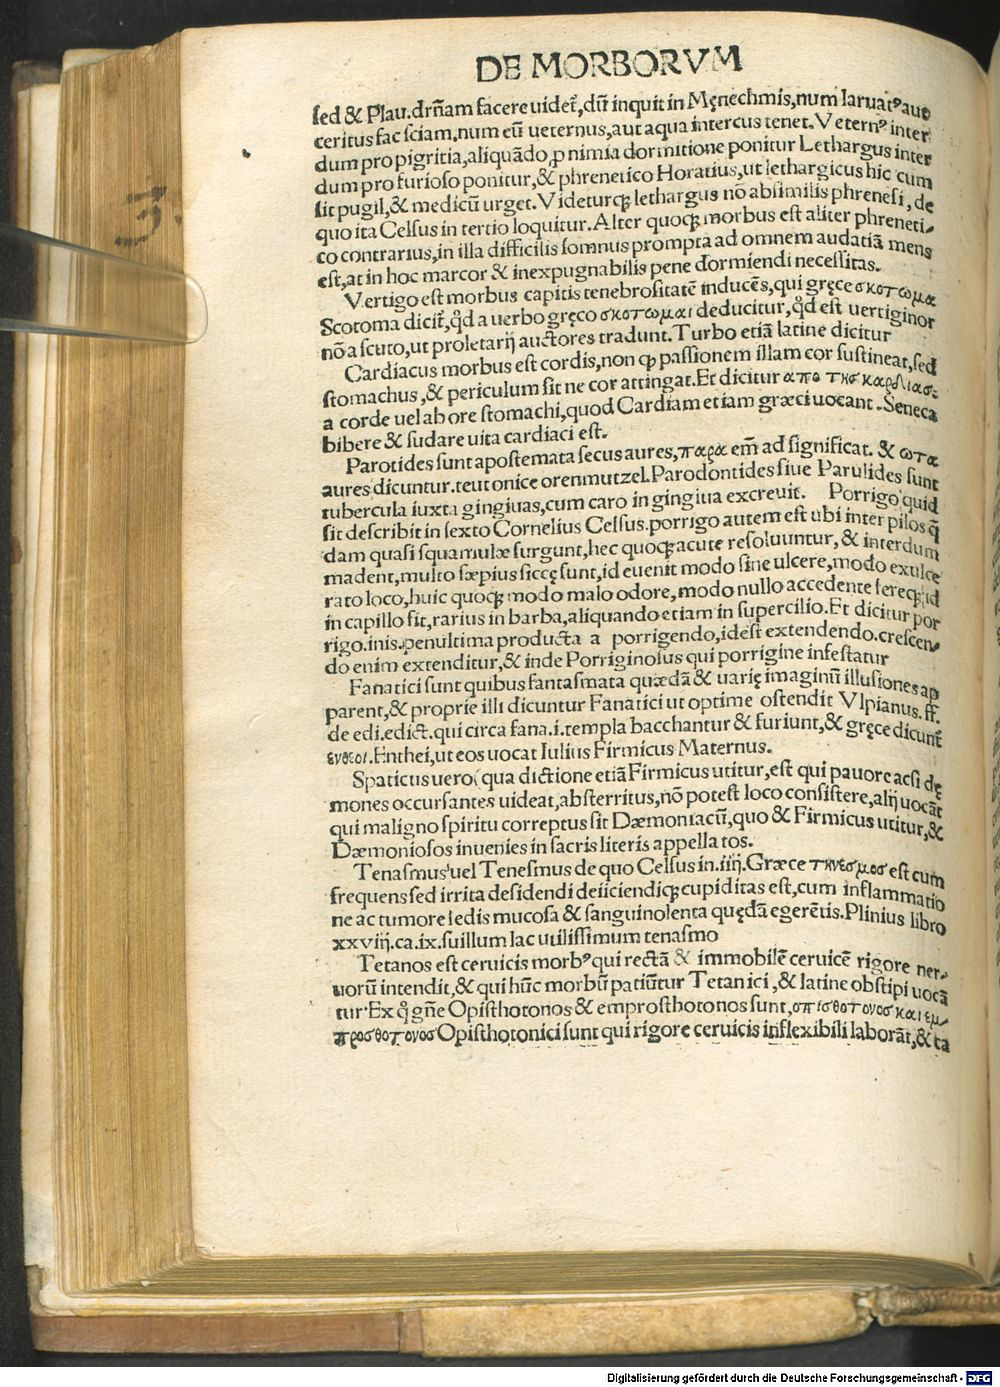 DE MORBORVM
sed & Plau. drñam facere uidet᷑, dũ inquit in Męnechmis, num laruatꝰ aut
ceritus fac sciam. num eũ ueternus, aut aqua intercus tenet. Veternꝰ inter
dum pro pigritia, aliquãdo, ꝓ nimia dormitione ponitur Lethargus inter
dum pro furioso ponitur, & phrenetico Horatius, ut lethargicus hic cum
sit pugil, & medicũ urget. Videturqꝫ lethargus nõ absimilis phrenesi, de
quo ita Celsus in tertio loquitur. Alter quoqꝫ morbus est aliter phreneti-
co contrarius, in illa difficilis somnus prompta ad omnem audatiã mens
est, at in hoc marcor & inexpugnabilis pene dormiendi necessitas.
Vertigo est morbus capitis tenebrositatẽ inducẽs, qui gręce σκοτωμα
Scotoma dicit᷑, qď a uerbo gręco σκοτωμαι deducitur, qď est uertiginor
nõ a scuto, ut proletarij auctores tradunt. Turbo etiã latine dicitur
Cardiacus morbus est cordis, non qꝫ passionem illam cor sustineat, sed
stomachus, & periculum sit ne cor attingat. Et dicitur απο της καρδιασ.
a corde uel ab ore stomachi, quod Cardiam etiam græci uocant. Seneca
bibere & sudare uita cardiaci est.
Parotides sunt apostemata secus aures, παρα em̃ ad significat. & ωτα
aures dicuntur. teutonice orenmutzel. Parodontides siue Parulides sunt
tubercula iuxta gingiuas, cum caro in gingiua excreuit. Porrigo quid
sit describit in sexto Cornelius Celsus. porrigo autem est ubi inter pilos q̃
dam quasi squamulæ surgunt, hec quoqꝫ acute resoluuntur, & interdum
madent, multo sæpius siccę sunt, id euenit modo sine ulcere, modo exulce
rato loco, huic quoqꝫ modo malo odore, modo nullo accedente fereqꝫ id
in capillo fit, rarius in barba, aliquando etiam in supercilio. Et dicitur por
rigo. inis. penultima producta a porrigendo, idest extendendo. crescen-
do enim extenditur, & inde Porriginosus qui porrigine infestatur
Fanatici sunt quibus fantasmata quædã & uarię imaginũ illusiones ap
parent, & proprie illi dicuntur Fanatici ut optime ostendit Vlpianus. ff.
de edi. edict. qui circa fana. i. templa bacchantur & furiunt, & gręce dicunt᷑
ενθεοι. Enthei, ut eos uocat Iulius Firmicus Maternus.
Spaticus uero (qua dictione etiã Firmicus utitur, est qui pauore acsi dę
mones occursantes uideat, absterritus, nõ potest loco consistere, alij uocãt
qui maligno spiritu correptus sit Dæmoniacũ, quo & Firmicus utitur, &
Dæmoniosos inuenies in sacris literis appellatos.
Tenasmus uel Tenesmus de quo Celsus in. iiij. Græce τηνεσμος est cum
frequens sed irrita desidendi deiiciendiqꝫ cupiditas est, cum inflammatio
ne ac tumore sedis mucosa & sanguinolenta quędã egerẽtis. Plinius libro
xxviij. ca. ix. suillum lac utilissimum tenasmo
Tetanos est ceruicis morbꝰ qui rectã & immobilẽ ceruicẽ rigore ner-
uorũ intendit, & qui hũc morbũ patiũtur Tetanici, & latine obstipi uocã
tur. Ex q̊ gñe Opisthotonos & emprosthotonos sunt, οπισθοτονος και εμ-
προσθοτονος Opisthotonici sunt qui rigore ceruicis inflexibili laborãt, & ca
3.
Digitalisierung gefördert durch die Deutsche Forschungsgemeinschaft - DFG